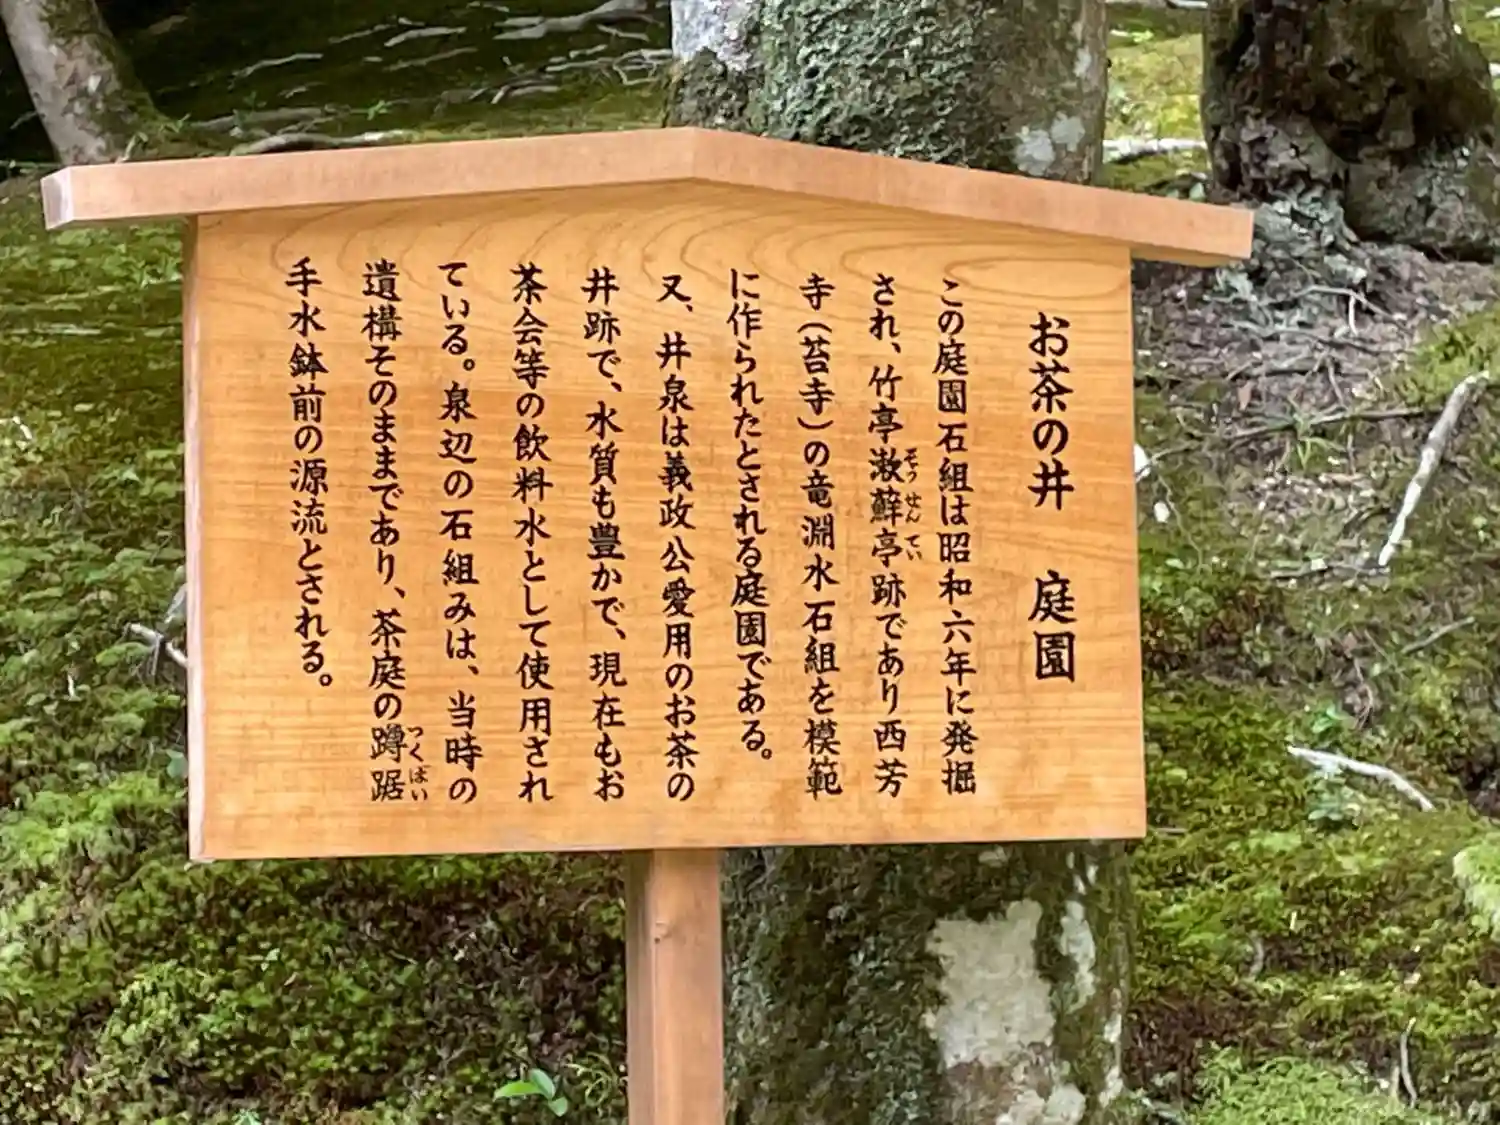 お茶の井　庭園
この庭園石組は昭和六年に発掘
され、竹亭漱蘚亭跡であり西芳
そうせんてい
寺（苔寺）の竜淵水石組を模範
に作られたとされる庭園である。
又、井泉は義政公愛用のお茶の
井跡で、水質も豊かで、現在もお
茶会等の飲料水として使用され
ている。泉辺の石組みは、当時の
遺構そのままであり、茶庭の蹲踞
つくばい
手水鉢前の源流とされる。